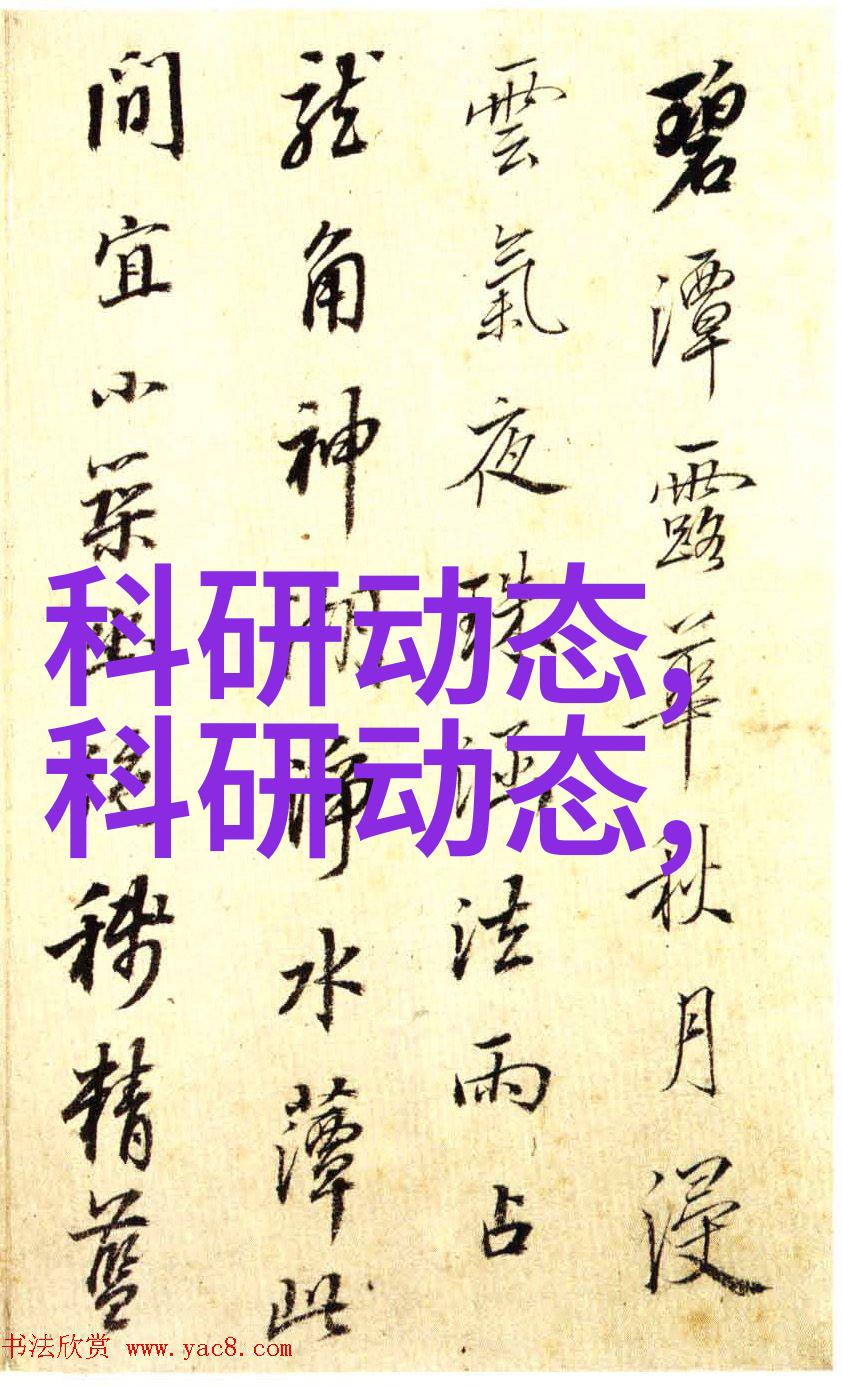 碧潭露華秋月浸
雲氣夜涵法雨占
龍角神淨水藫此
間宜小築幽絕稱精藍
科研动态,
科研动态,
书法欣赏 www.yac8.com